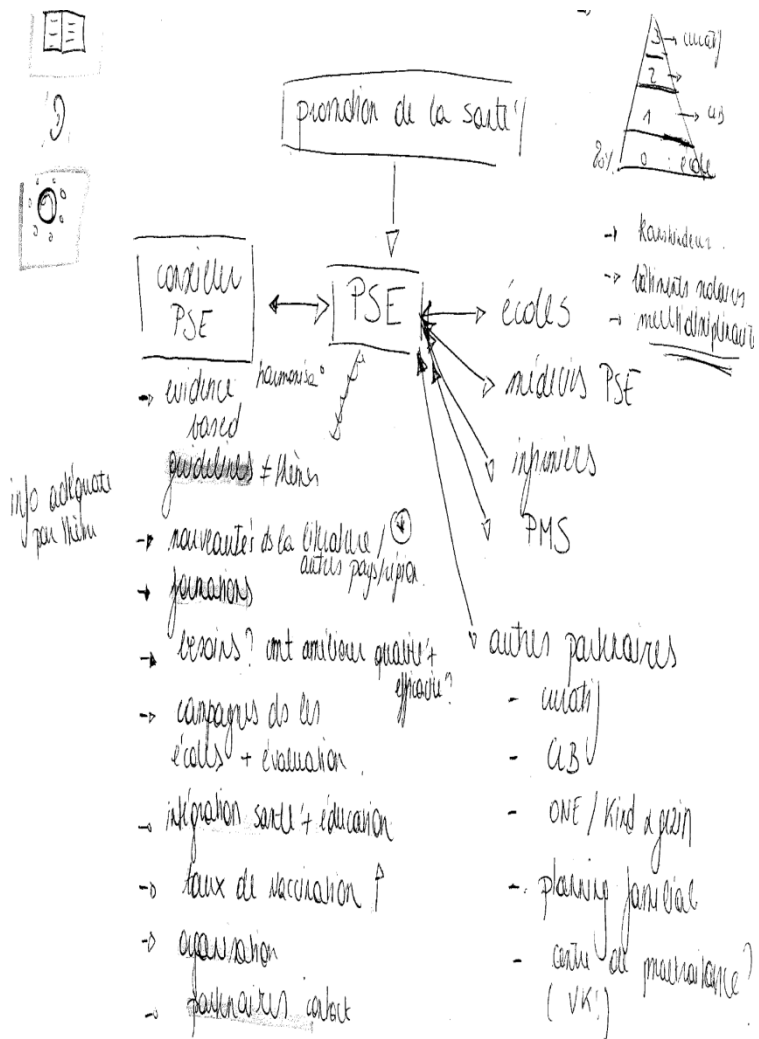 3 → curatif
2 →
1 → CLB
80% 0 : école
promotion de la santé
→ bâtiments scolaires
→ multidisciplinaire
conseiller
PSE
PSE
harmonisa°
→ écoles
médecins PSE
infirmiers
PMS
→ evidence
based
guidelines ≠ thèmes
info adéquate
par thème
→ nouveautés ds la littérature /
autres pays/région
→ formations
→ besoins? cmt améliorer qualité +
efficacité?
→ campagnes ds les
écoles + évaluation
→ intégration santé + éducation
→ taux de vaccination ↑
→ organisation
→ partenaires contact
autres partenaires
- curatif
- CLB
- ONE / Kind & gezin
- planning familial
- centre de maltraitance?
(VK!)